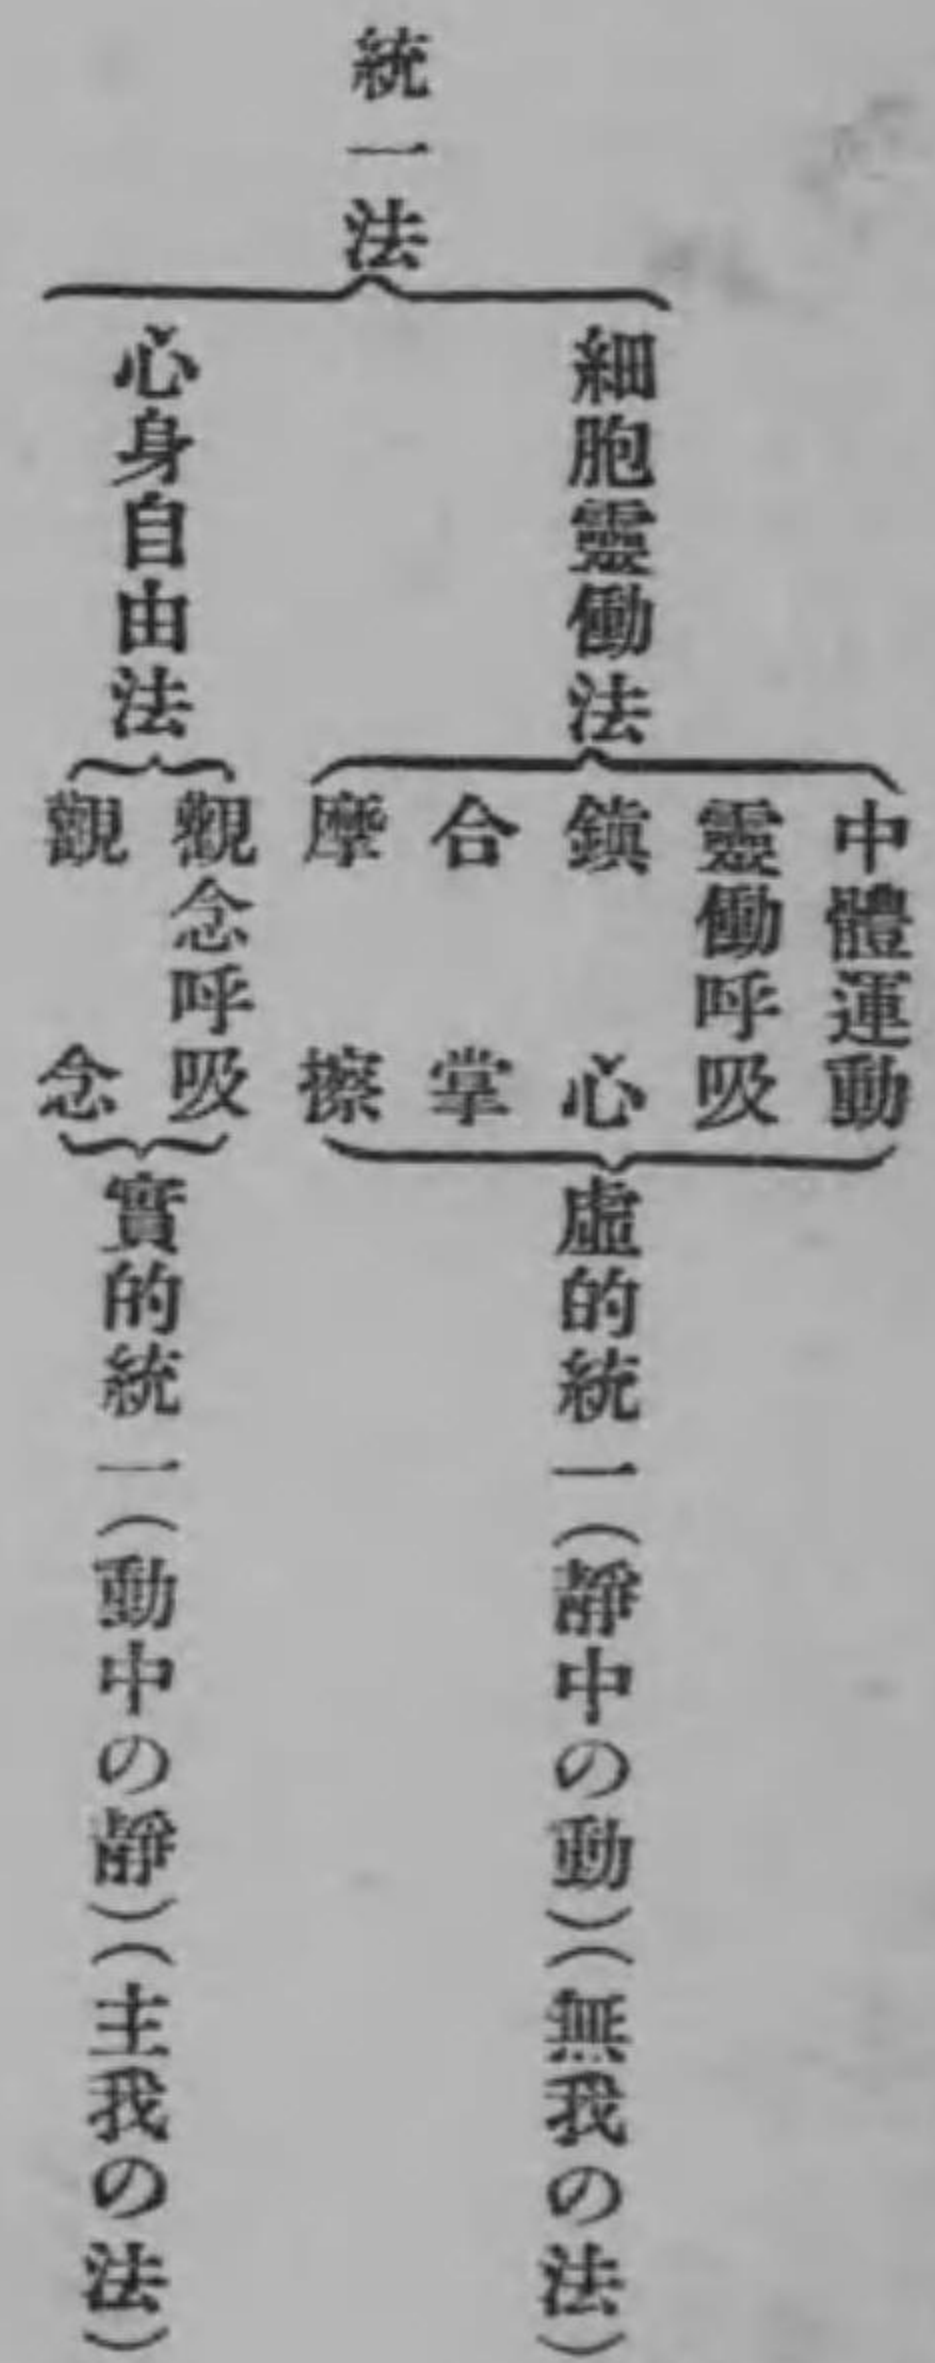 統一法
細胞靈働法
中體運動
靈働呼吸
鎭心
合掌
摩擦
虛的統一(靜中の動)(無我の法)
心身自由法
觀念呼吸
觀念
實的統一(動中の靜)(主我の法)